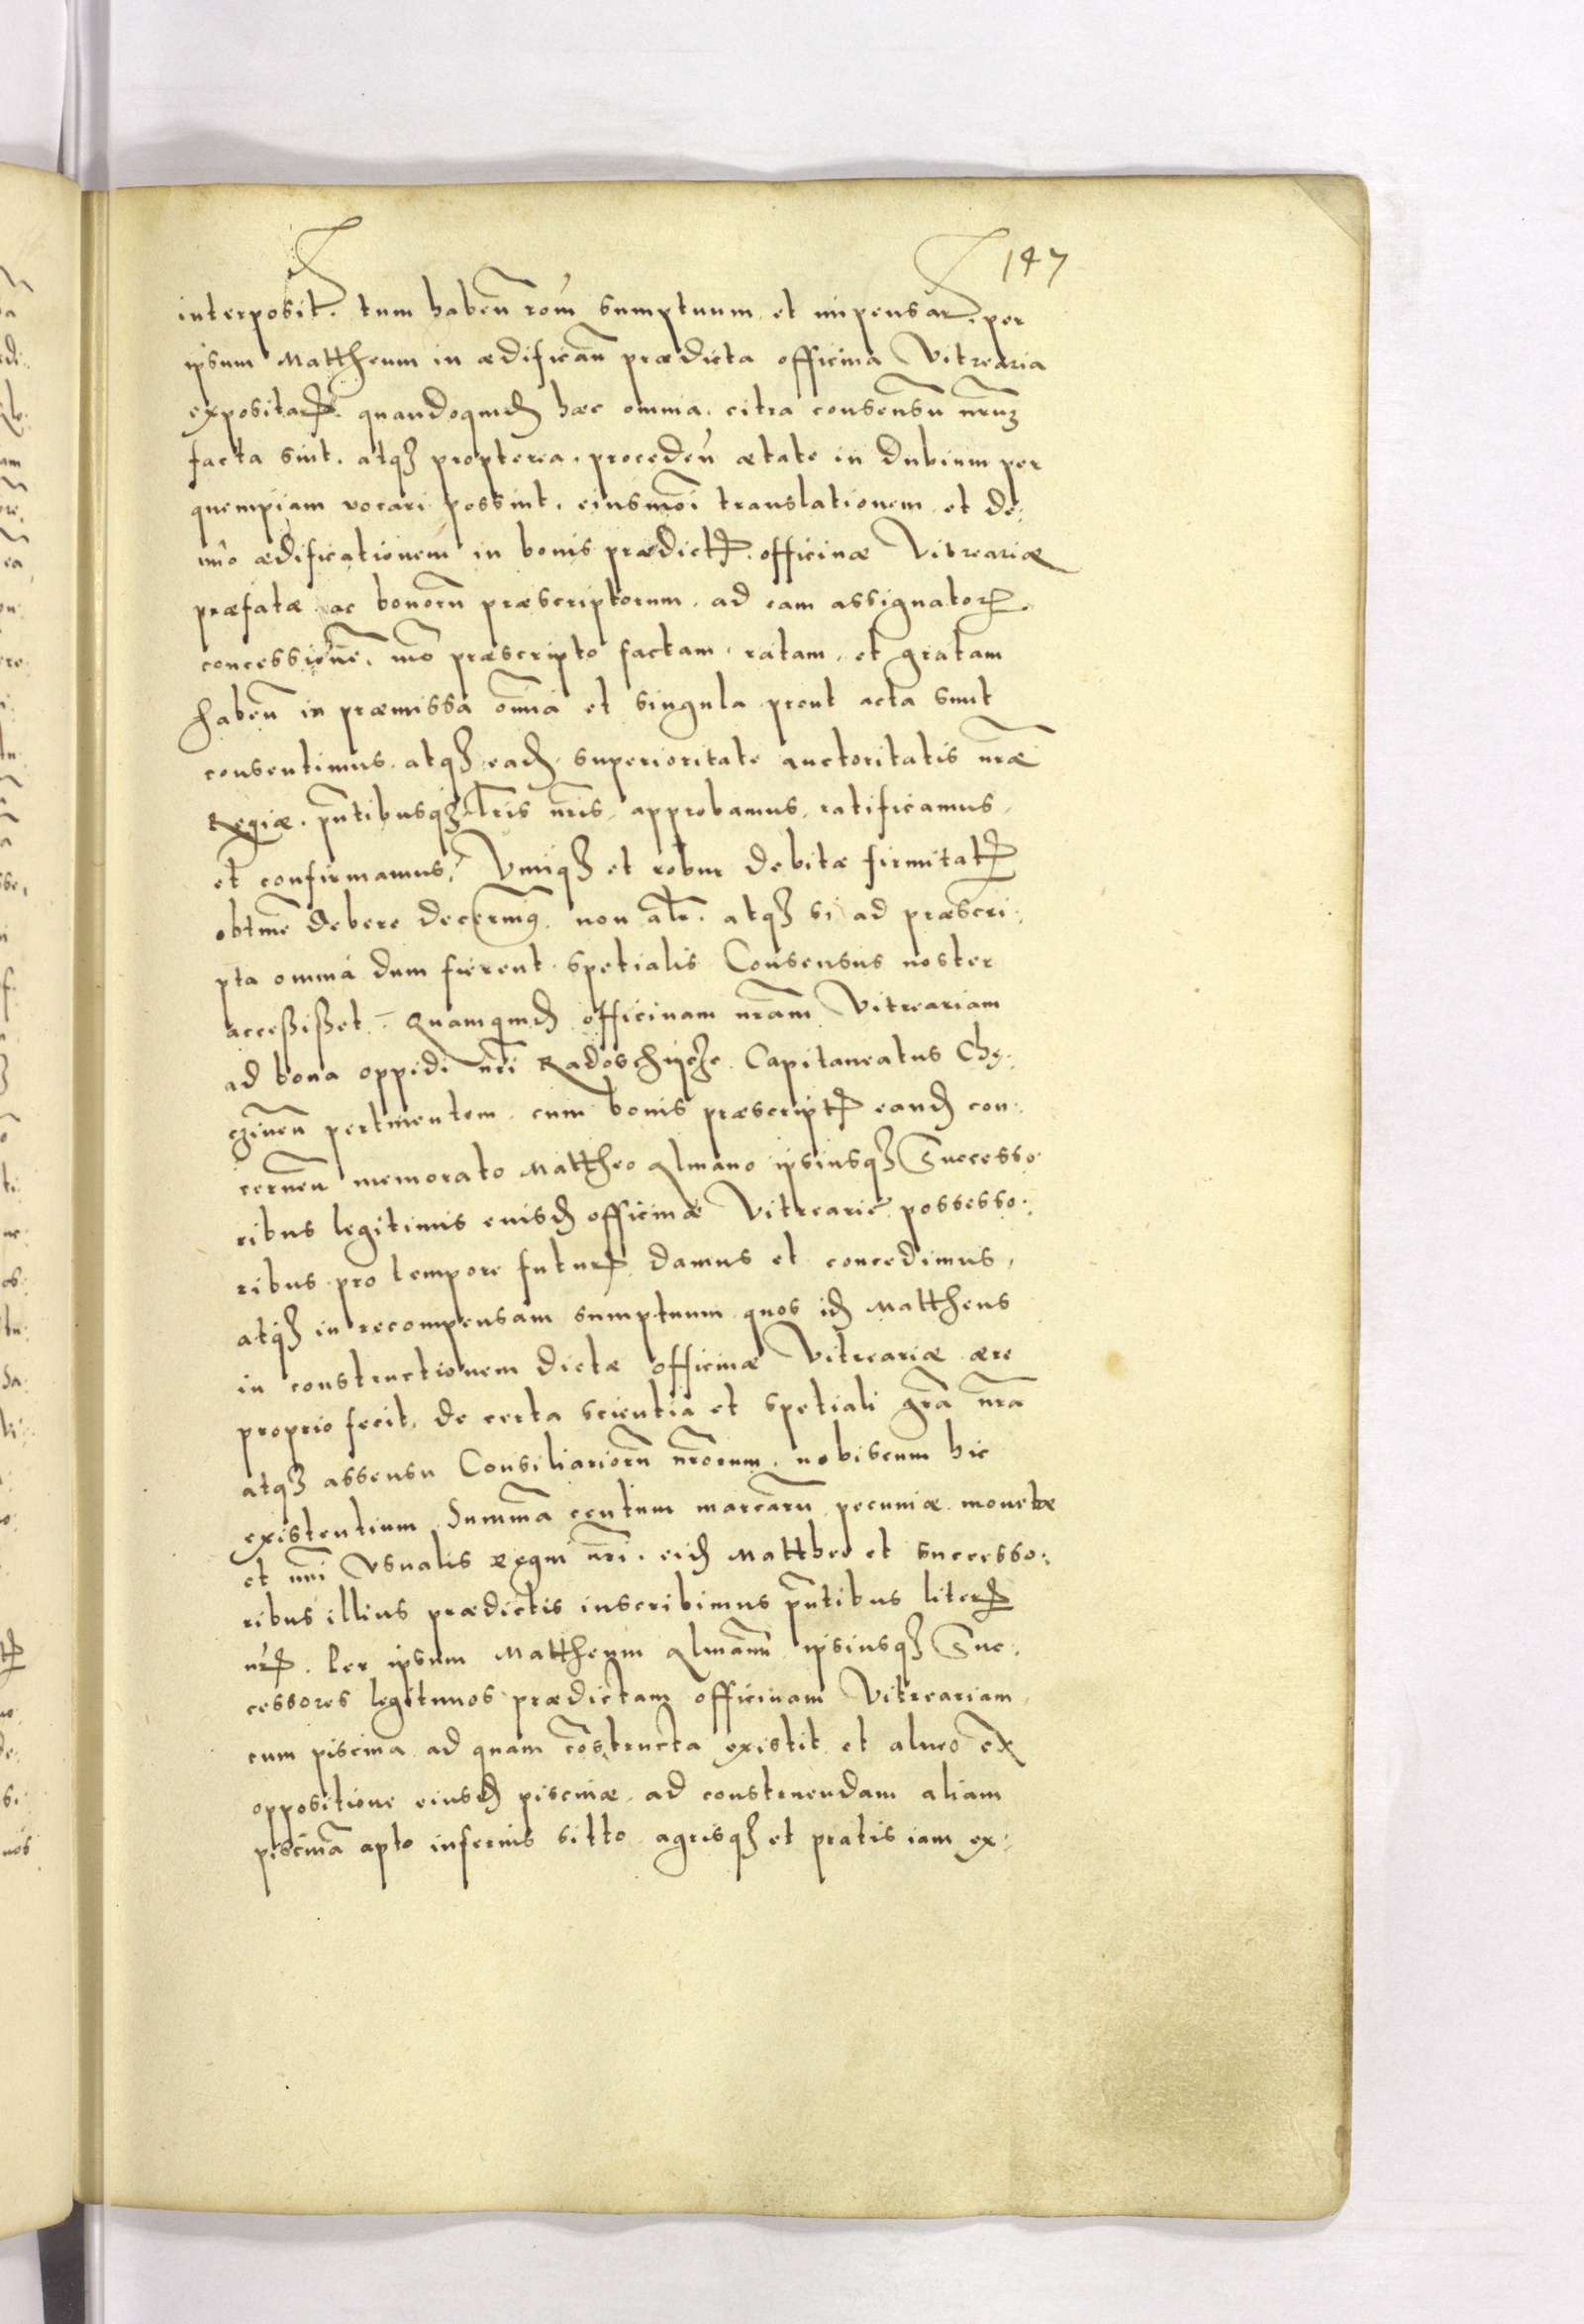 147
interposit. tum habeñ rõm sumptuum et impensar. per
ipsum Mattheum in ædificañ prædicta officina Vitrearia
expositar. quandoquid hæc omnia. citra consensũ nr̃um
facta sint. atqz propterea. procedeñ ætate in dubium per
quempiam vocari possint. eiusmõi translationem et de
ædificationem in bonis prædict. officinæ Vitreariæ
præfatæ ac bonorũ præscriptorum. ad eam assignator.
concessionẽ. mõ præscripto factam, ratam, et gratam
habeñ in præmissa õmia et singula prout acta sunt
consentimus. atqz ead. superioritate auctoritatis nr̃æ
Regiæ. pñtibusqz lr̃is nr̃is, approbamus, ratificamus,
et confirmamus, Vimqz et robur debitæ firmitat
obtinẽ debere decernimꝰ. non alr̃. atqz si ad præscri:
pta omnia dum fierent spetialis Consensus noster
acceßißet. Quamquid officinam nr̃am Vitreariam
ad bona oppidi nr̃i Radoschijcze Capitaneatus Chę:
czineñ pertinentem. cum bonis præscript eand con:
cerneñ memorato Mattheo Almano ipsiusqz Successo
ribus legitimis eiusd officinæ Vitrearię possesso:
ribus pro tempore futur. damus et concedimus,
atqz in recompensam sumptuum quos id Mattheus
in constructionem dictæ officinæ Vitreariæ ære
proprio fecit, de certa scientia et spetiali gr̃a nr̃a
atqz assensu Consiliariorũ nr̃orum. nobiscum hic
existentium Summã centum marcarũ pecuniæ monetæ
et nũi Vsualis Regni nr̃i. eid Mattheo et successo:
ribus illius prædictis inscribimus pñtibus liter
nr. Per ipsum Mattheum Almanũ ipsiusqz Suc:
cessores legitimos prædictam officinam Vitreariam,
cum piscina ad quam cõstructa existit et alueo ex
oppositione eiusd piscinæ. ad construendam aliam
piscinã apto inferius sitto agrisqz et pratis iam ex: